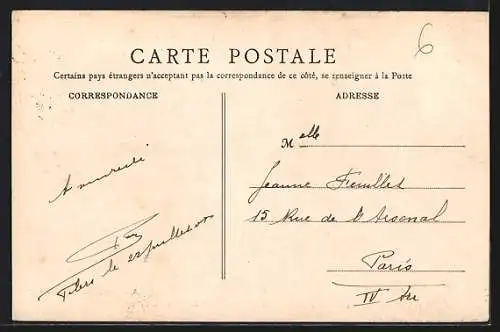 6
CARTE POSTALE
Certains pays étrangers n'acceptant pas la correspondance de ce côté, se renseigner à la Poste
CORRESPONDANCE
ADRESSE
Melle
A
Jeanne
15 Rue de l'Arsenal
le
Paris
IV